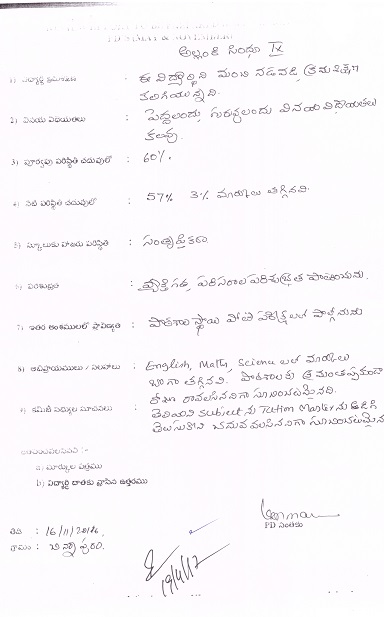 అల్లంకి సింధూ IX
1) విద్యార్థి క్రమశిక్షణ : ఈ విద్యార్థిని మంచి నడవడి, క్రమశిక్షణ
కలిగియున్నది.
2) వినయ విధేయతలు : పెద్దలందు, గురువులందు వినయ విధేయతలు
కలవు.
3) పూర్వపు పరిస్థితి చదువులో : 60%.
4) నేటి పరిస్థితి చదువులో : 57% 3% మార్కులు తగ్గినవి.
5) స్కూలుకు హాజరు పరిస్థితి : సంతృప్తికరం.
6) పరిశుభ్రత : వ్యక్తిగత, పరిసరాల పరిశుభ్రత పాటించును.
7) ఇతర అంశములలో ప్రావీణ్యత : పాఠశాల స్థాయి పోటీ పరీక్షలలో పాల్గొనును
8) అభిప్రాయములు / సలహాలు : English, Maths, Science లలో మార్కులు
బాగా తగ్గినవి. పాఠశాలకు క్రమంతప్పకుండా
రోజూ రావలసినదిగా సూచించటమైనది.
9) కమిటీ సభ్యుల సూచనలు : తెలియని subject ను Tution Master ను అడిగి
తెలుసుకొని చదువవలసినదిగా సూచించటమైన
జతపరచవలసినవి :-
a) మార్కుల పత్రము
b) విద్యార్థి దాతకు వ్రాసిన ఉత్తరము
PD సంతకం
తేది : 16/11/2016
గ్రామం : చిన్నాపురం.
19/4/17